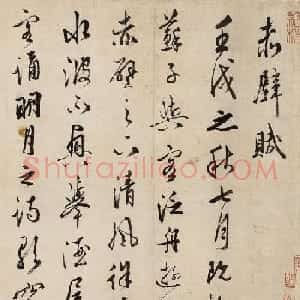 赤壁賦
壬戌之秋七月既
蘇子與客泛舟遊
赤壁之下清風徐
水波不興舉酒屬
客誦明月之詩歌
Shufaziliao.com